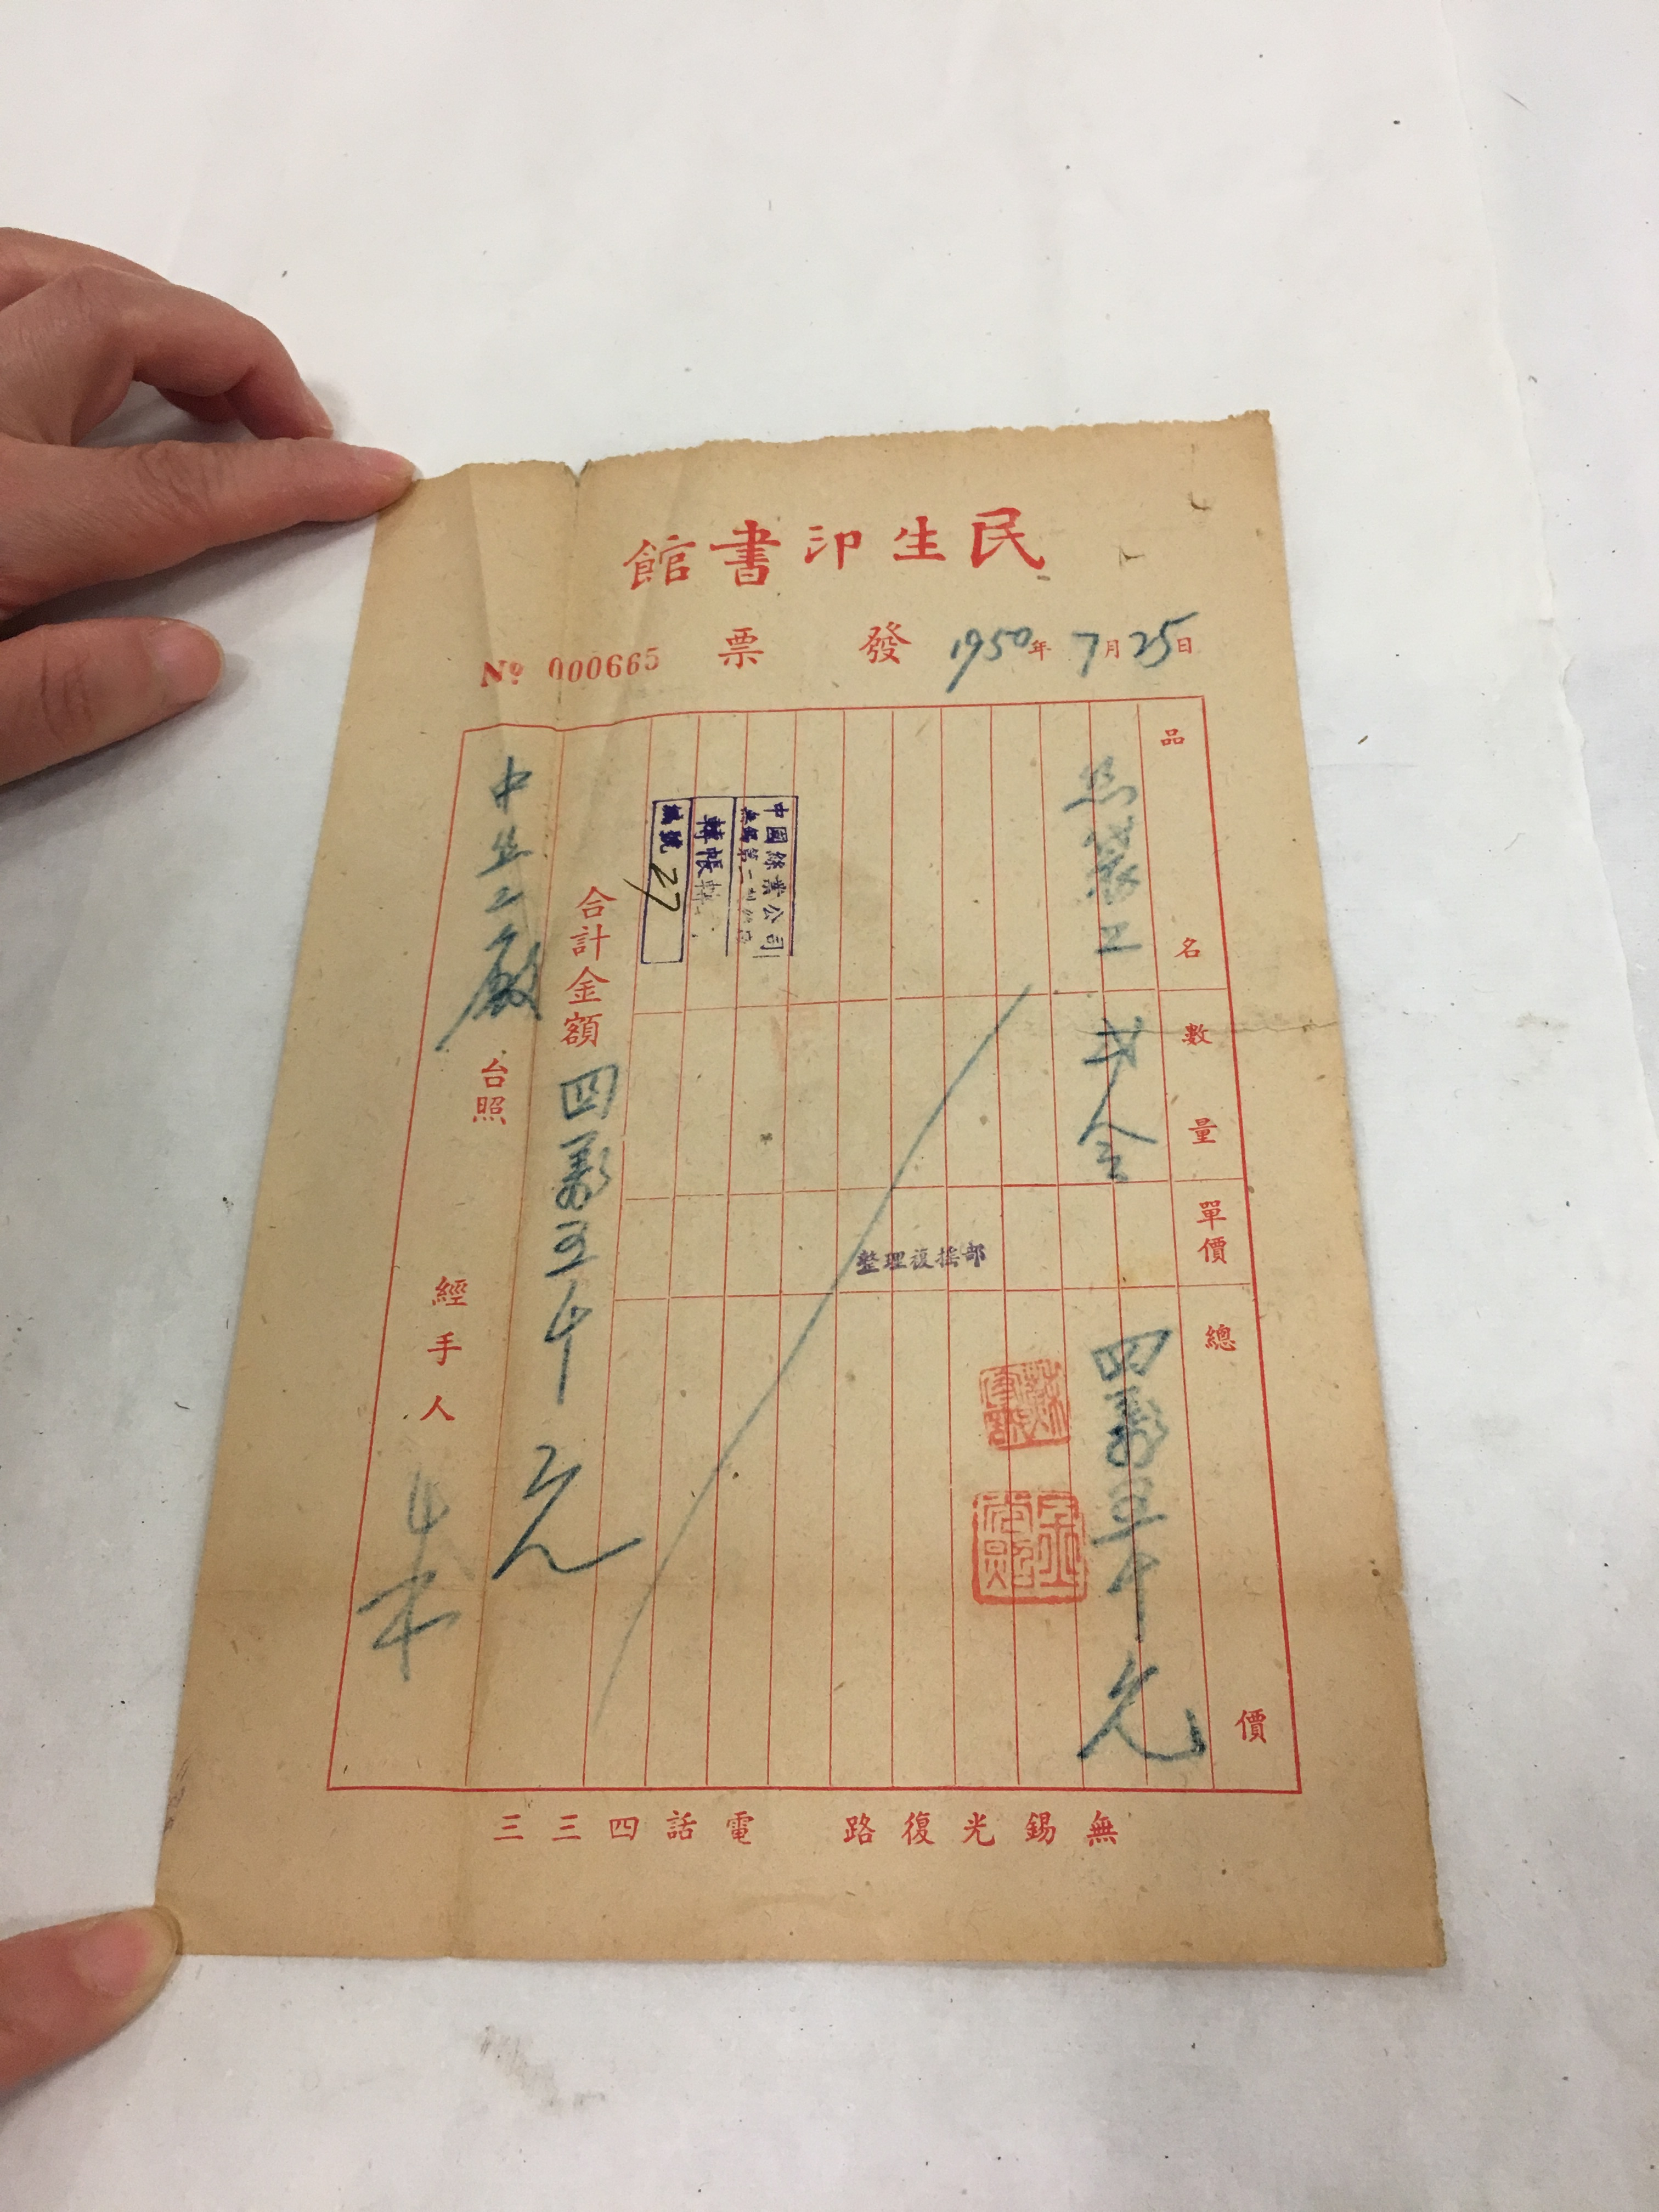 民生印書館
發票
1950年7月25日
№ 000665
品名
數量
單價
總價
工
四萬五千元
整理復搖部
中國絲業公司
無錫第二
轉帳
編號 27
合計金額 四萬五千元
中丝二廠 台照
經手人
無錫光復路 電話四三三